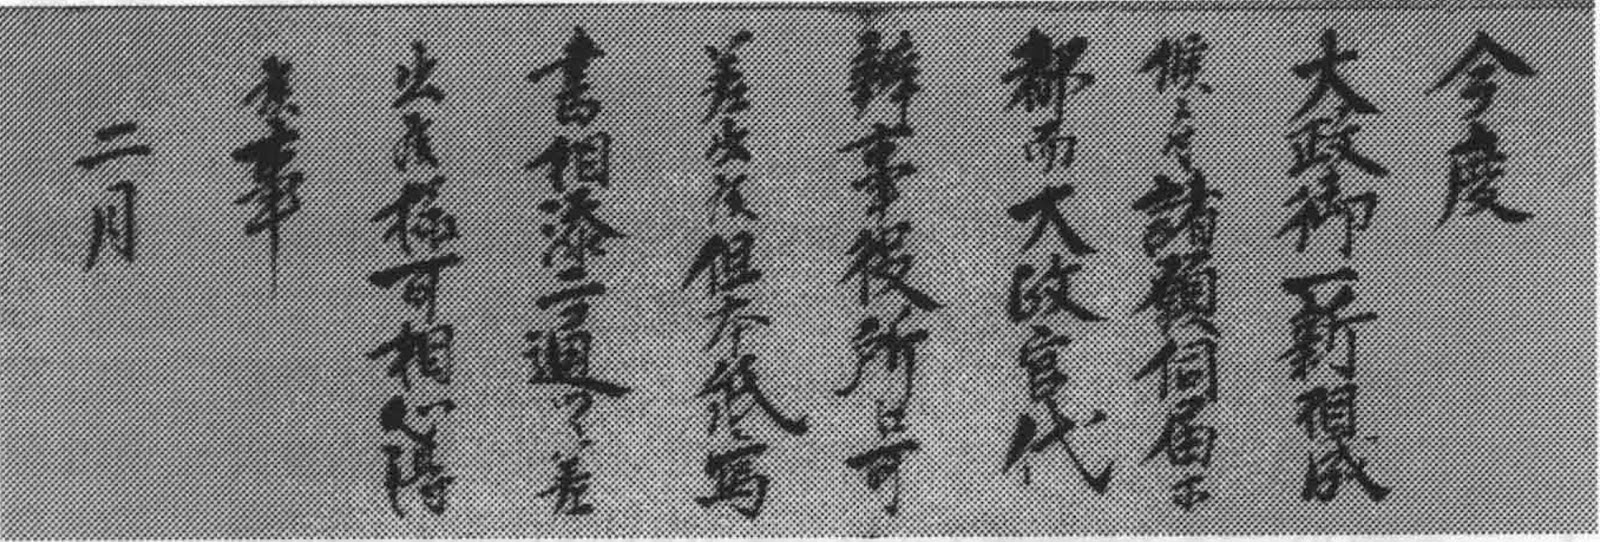 今度
大政御一新相成
候ニ付諸願伺届等
都而大政官代
辨事役所江可
差出候但本紙写
書相添二通ツヽ差
出候様可相心得
候事
二月